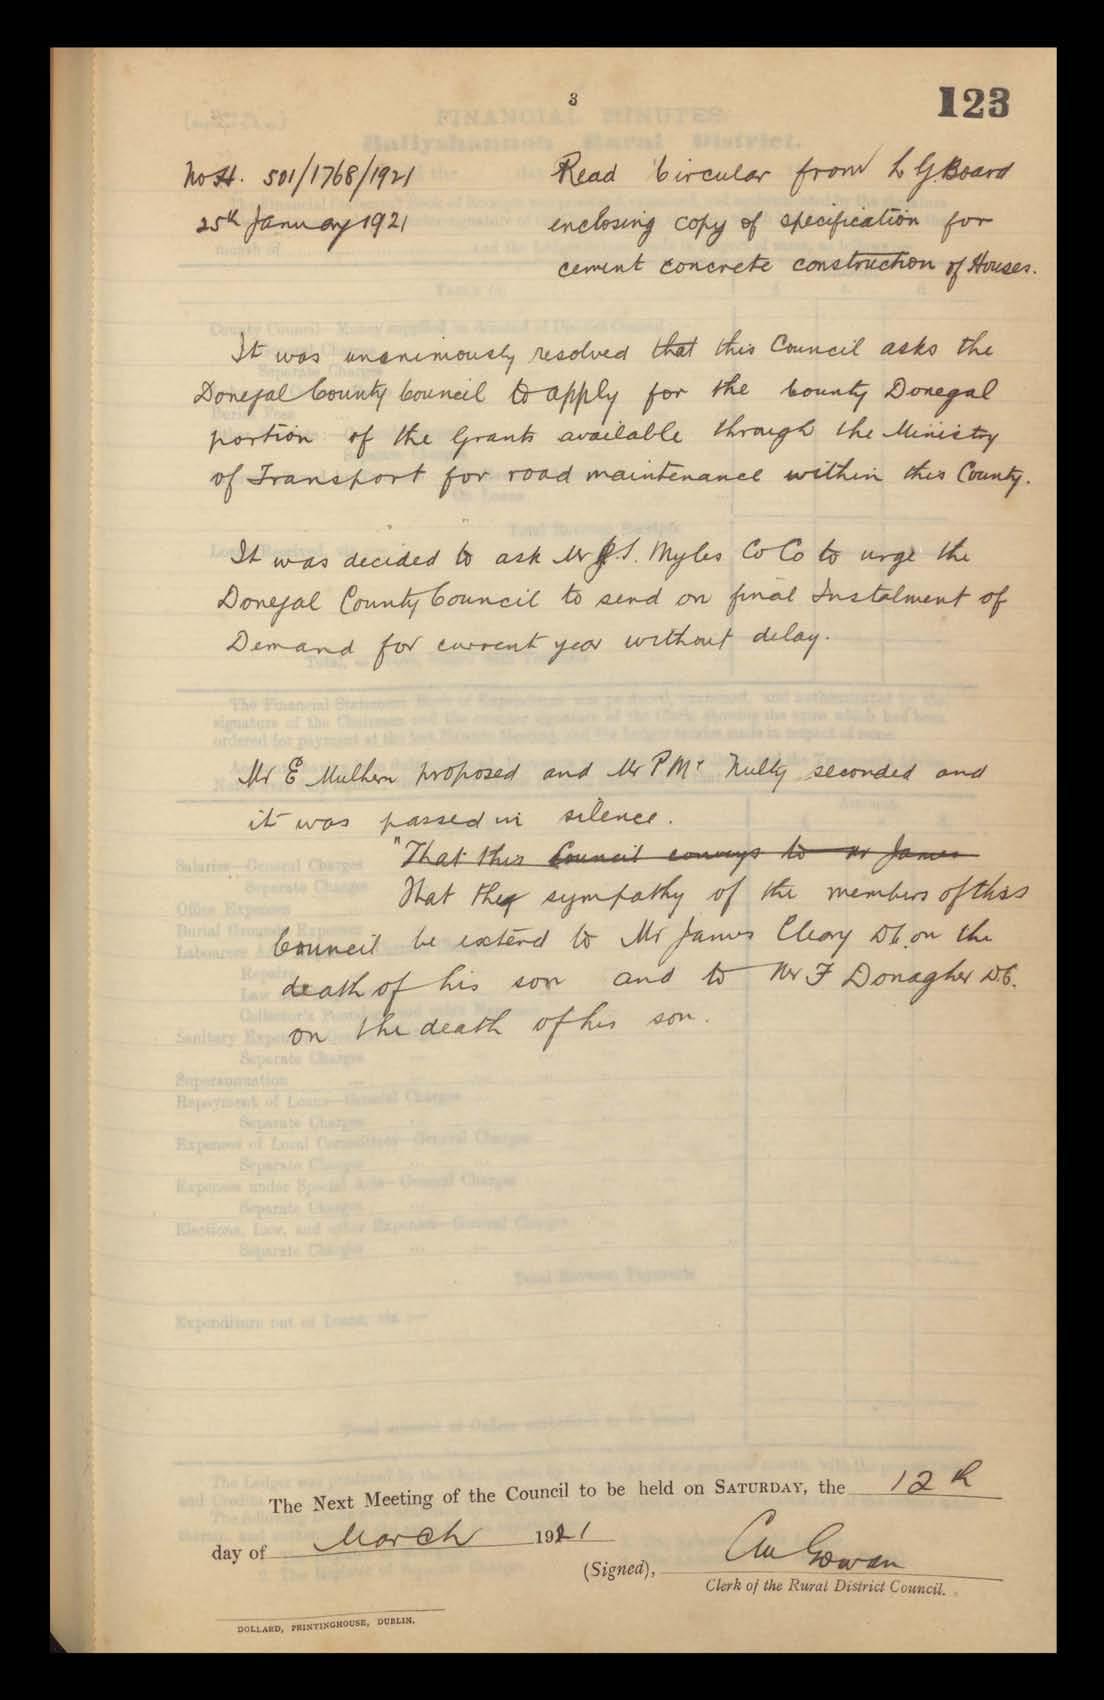 3
123
No H. 501/1768/1921
25th January 1921
Read Circular from L G. Board
enclosing copy of specification for
cement concrete construction of Houses.
It was unanimously resolved that this Council asks the
Donegal County Council to apply for the County Donegal
portion of the Grants available through the Ministry
of Transport for road maintenance within this County.
It was decided to ask Mr J.S. Myles Co Co to urge the
Donegal County Council to send on final Instalment of
Demand for current year without delay.
Mr E Mulhern proposed and Mr P Mc Nulty seconded and
it was passed in silence.
"That this Council conveys to Mr James
That the sympathy of the members of this
Council be extend to Mr James Cleary D.C. on the
death of his son and to Mr F Donagher D.C.
on the death of his son.
The Next Meeting of the Council to be held on SATURDAY, the 12th
day of March 1921
(Signed), Gowan
Clerk of the Rural District Council.
DOLLARD, PRINTINGHOUSE, DUBLIN.